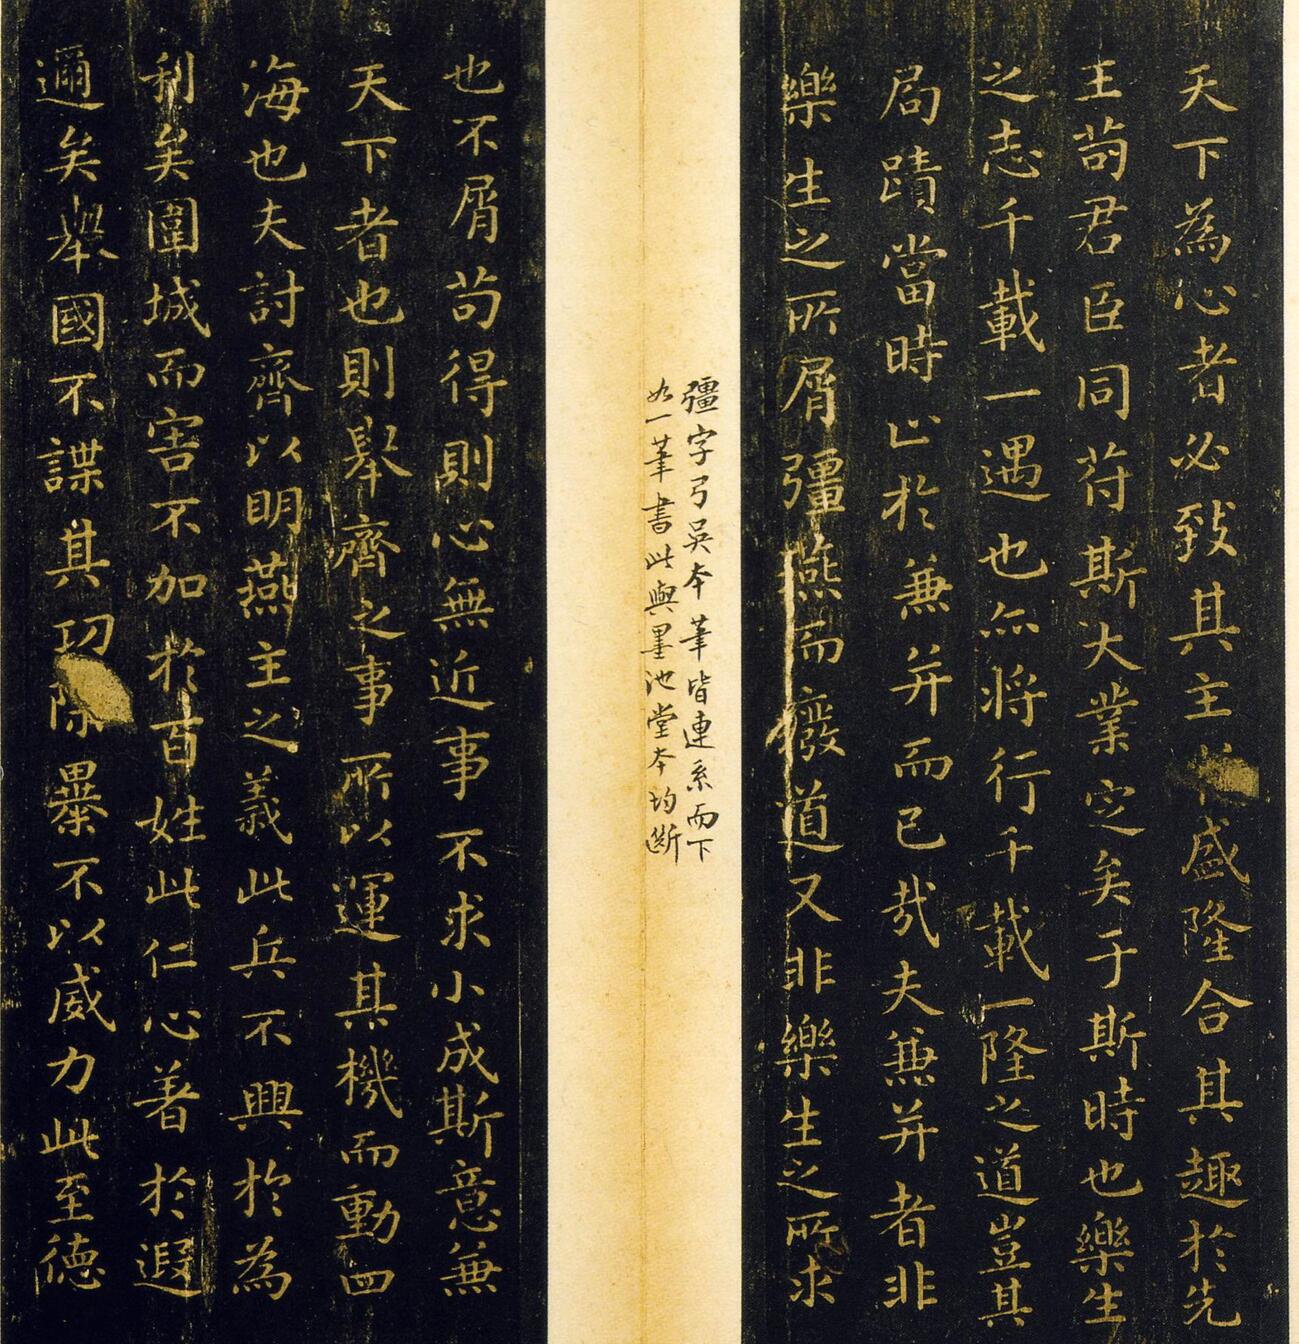 天下為心者必致其主盛隆合其趣於先
王苟君臣同符斯大業定矣于斯時也樂生
之志千載一遇也亦將行千載一隆之道豈其
局蹟當時止於兼并而已哉夫兼并者非
樂生之所屑彊燕而廢道又非樂生之所求
彊字弓吳本筆皆連系而下
如一筆書此與墨池堂本均斷
也不屑苟得則心無近事不求小成斯意兼
天下者也則舉齊之事所以運其機而動四
海也夫討齊以明燕主之義此兵不興於為
利矣圍城而害不加於百姓此仁心著於遐
邇矣舉國不謀其功除暴不以威力此至德